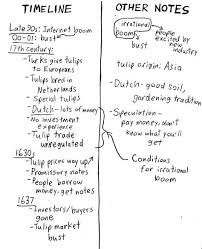 TIMELINE
Late 90s: Internet boom
00-01: bust
17th century:
- Turks give tulips
to Europeans
- Tulips bred in
Netherlands
- Special tulips
- Dutch - lots of money
- No investment
experience
- Tulip trade
unregulated
1630s
- Tulip prices way up
- Promissory notes
- People borrow
money, get notes
1637
- Investors/buyers
gone
- Tulip market
bust
OTHER NOTES
irrational
boom
bust
people excited by
new
industry
tulip origin: Asia
- Dutch - good soil,
gardening tradition
- Speculation -
pay money, don't
know what you'll
get
Conditions
for irrational
boom